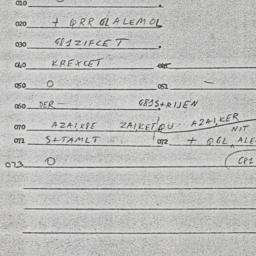 010
020 + QRR GLALEMOL
030 G81ZIFCET
040 KREXCET 045
050 O 051 –
060 DER – G81S+RIJEN
070 AZAIKBE ZAIKETQU AZAIKER
NIT
071 S+TAMLT 072 + QGL ALE
073 O C81